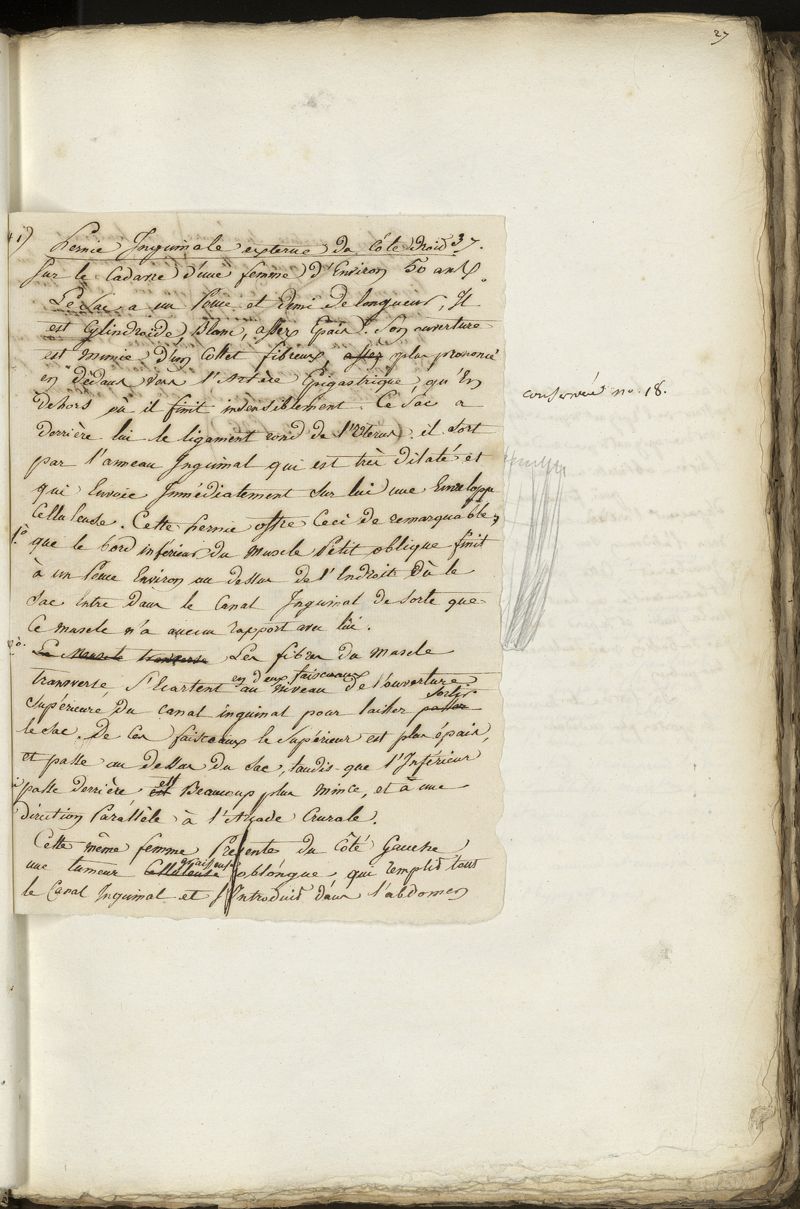 27
41) hernie Inguinale externe du Côté droit 37.
sur le Cadavre d'une femme d'Environ 50 ans.
Le Sac a un Pouce et demi de longueur, Il
est Cylindroïde, Blanc, assez Epais. Son ouverture
est munie d'un Collet fibreux, assez plus prononcé
en dedans vers l'Artère Epigastrique qu'En
dehors où il finit insensiblement. Ce Sac a
derrière lui le ligament rond de l'Uterus. il sort
par l'anneau Inguinal qui est très dilaté et
qui Envoie Immédiatement sur lui une Enveloppe
Celluleuse. Cette hernie offre Ceci de remarquable,
1.º que le bord inférieur du Muscle Petit oblique finit
à un Pouce Environ au dessus de l'Endroit où le
Sac Entre dans le Canal Inguinal de sorte que
Ce muscle n'a aucun rapport avec lui.
2º. Le Muscle transverse Les fibres du Muscle
transverse s'Ecartent en deux faisceaux au niveau de l'ouverture
Supérieure du Canal inguinal pour laisser passer sortir
le Sac. De Ces faisceaux le Supérieur est plus épais,
et passe au dessus du Sac, tandis que l'Inférieur
passe derrière est est Beaucoup plus mince, et à une
direction Parallèle à l'Arcade Crurale.
Cette même femme Présente du Côté Gauche
une tumeur Celluleuse graisseuse oblongue qui remplit tout
le Canal Inguinal et s'Introduit dans l'abdomen
conservée nº. 18.